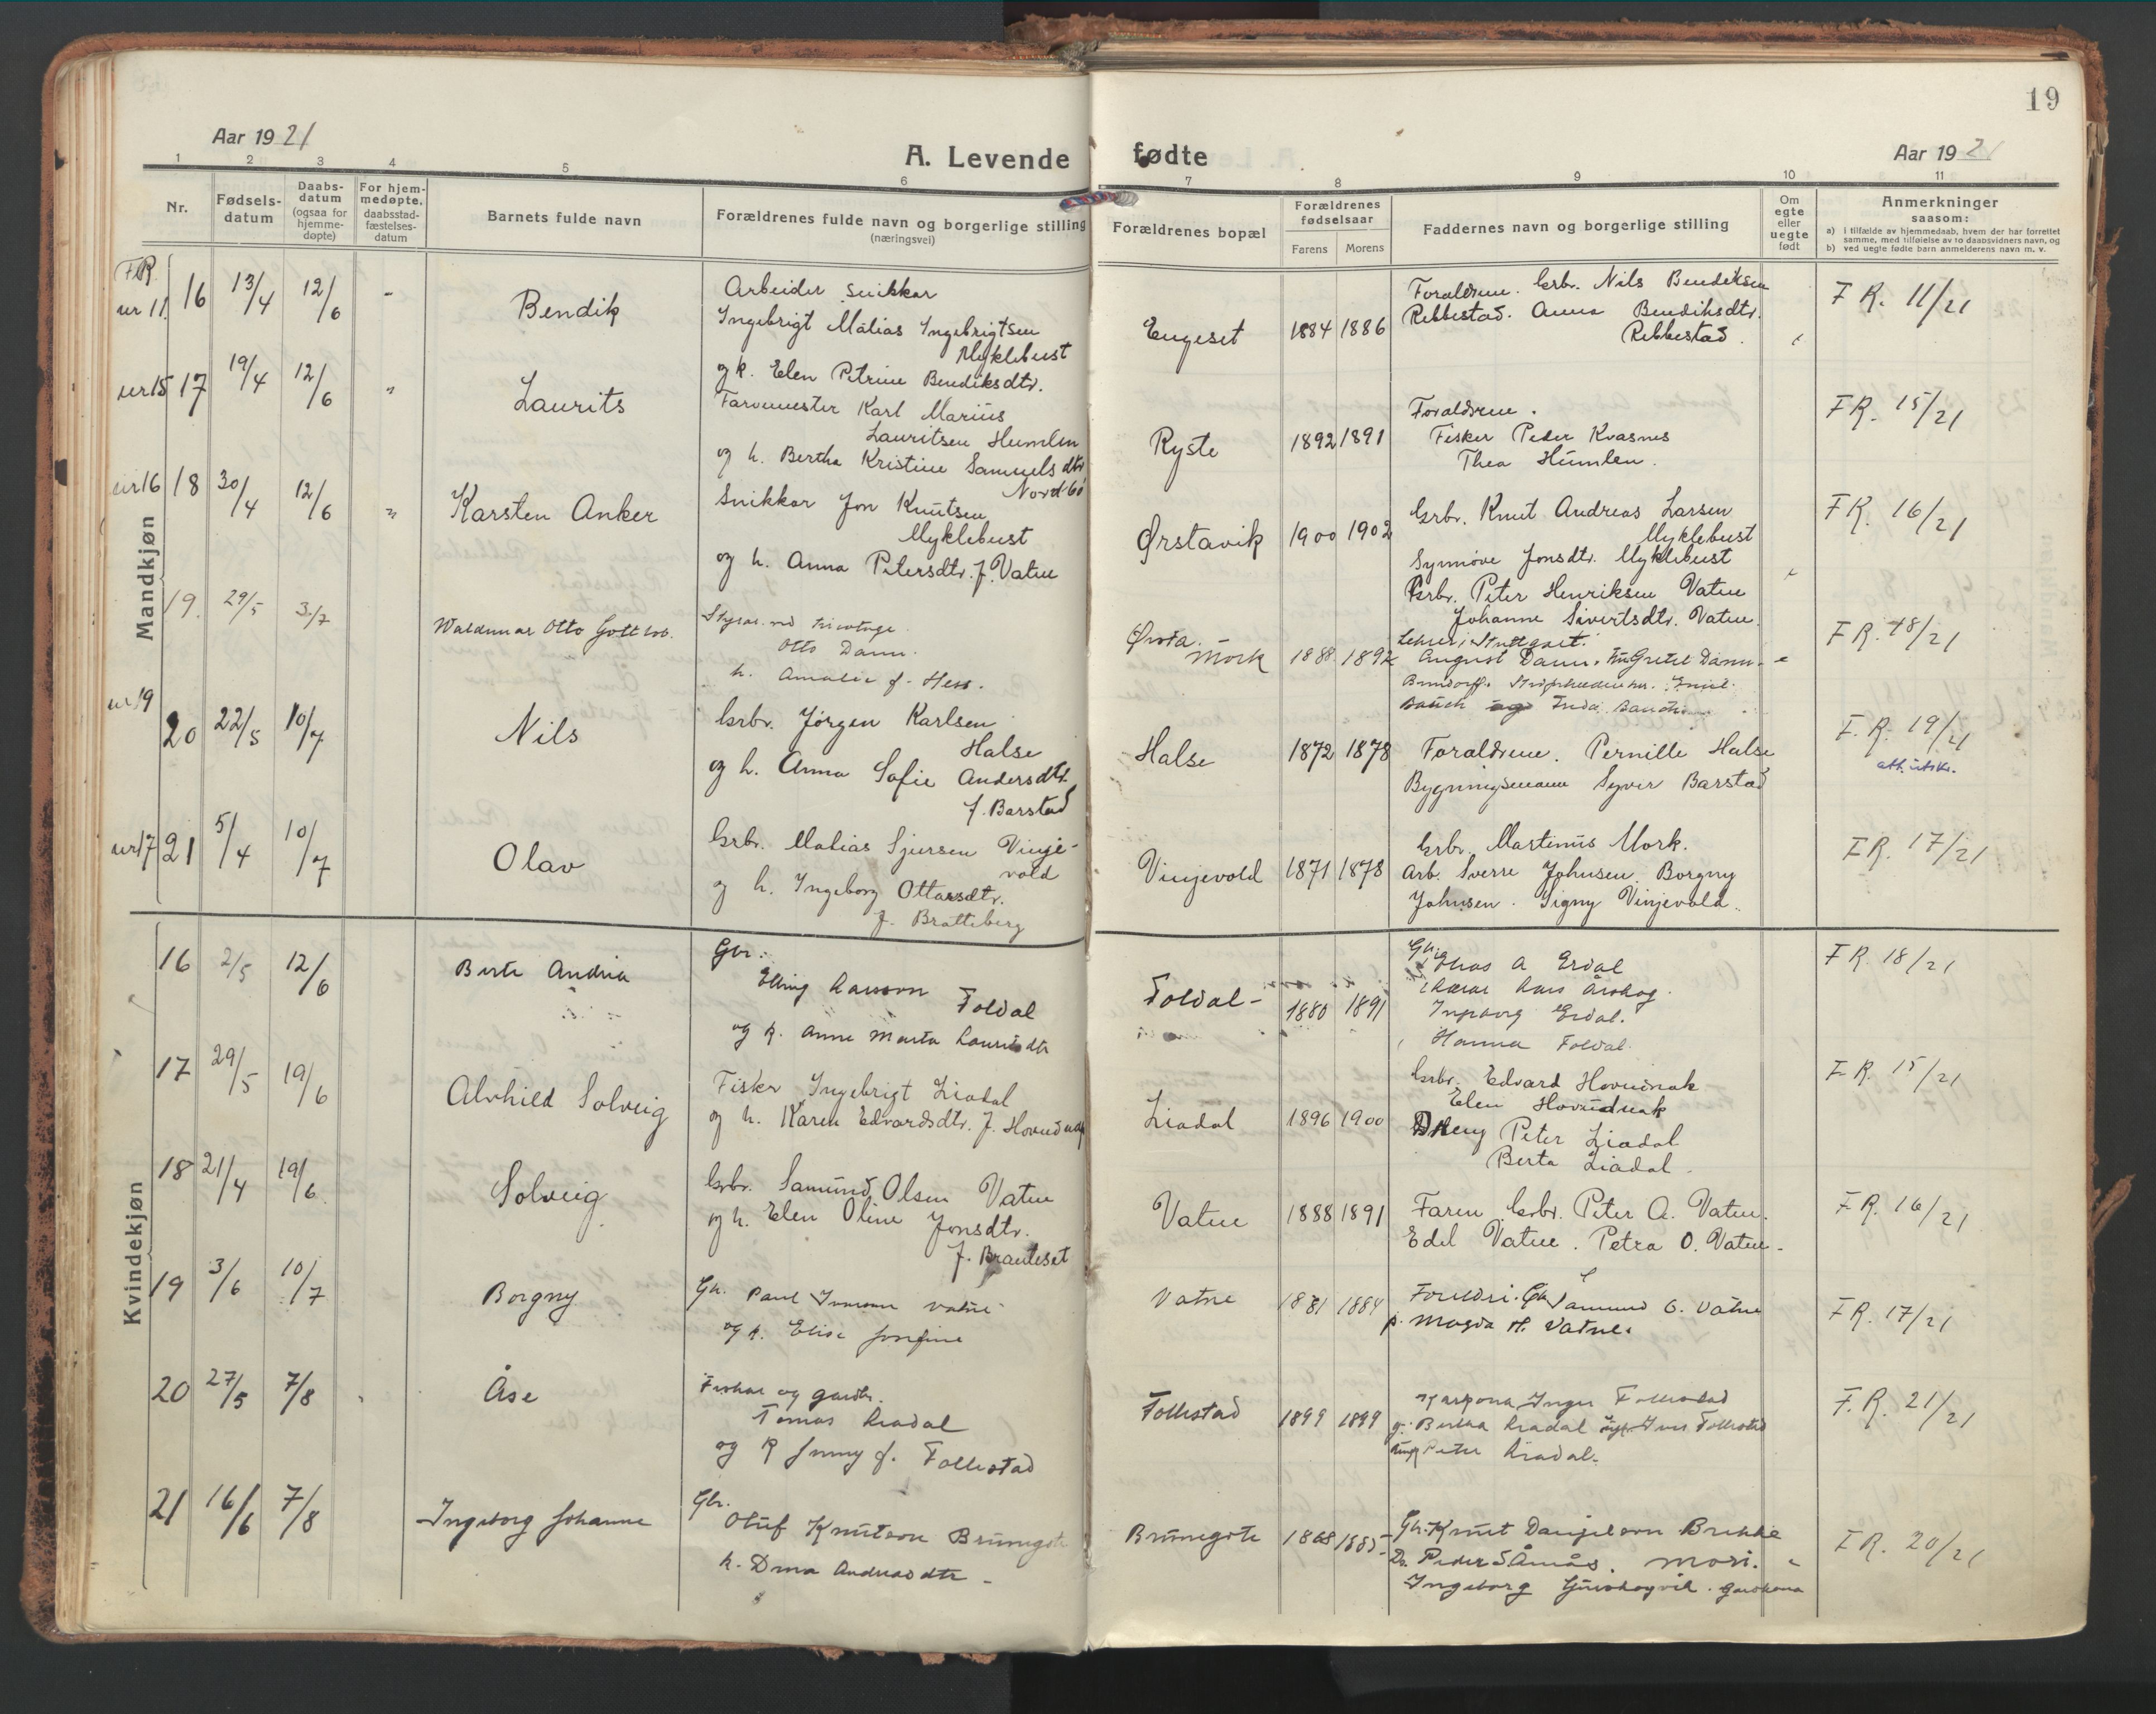 19
Aar 1921
A. Levende fødte
Aar 192
1 2 3 4 5 6 7 8 9 10 11
Nr.
Fødsels-
datum
Daabs-
datum
(ogsaa for
hjemme-
døpte)
For hjem-
medøpte.
daabsstad-
fæstelses-
datum
Barnets fulde navn
Forældrenes fulde navn og borgerlige stilling
(næringsvei)
Forældrenes bopæl
Forældrenes
fødselsaar
Farens Morens
Faddernes navn og borgerlige stilling
Om
egte
eller
uegte
født
Anmerkninger
saasom:
a) i tilfælde av hjemmedaab, hvem der har forrettet
samme, med tilføielse av to daabsvidners navn, og
b) ved uegte fødte barn anmelderens navn m. v.
Mandkjøn
F.R.
nr 11 16 13/4 12/6 - Bendik
Arbeider snikkar
Ingebrigt Malias Ingebrigtsen
Myklebust
og k. Elen Petrine Bendiksdtr.
Engeset 1884 1886
Foraldrene. Grbr. Nils Bendiksen
Rebbestad. Anna Bendiksdtr.
Rebbestad.
F R. 11/21
nr 15 17 19/4 12/6 " Laurits
Farvemester Karl Marius
Lauritsen Humlen
og h. Bertha Kristine Samuelsdtr
Nordbö
Ryste 1892 1891
Foraldrene.
Fisker Peder Kvasnes
Thea Humlen.
F R. 15/21
nr 16 18 30/4 12/6 " Karsten Anker
Snikkar Jon Knutsen
Myklebust
og h. Anna Petersdtr. f. Vatne
Ørstavik 1900 1902
Grbr. Knut Andreas Larsen
Myklebust
Synnøve Jonsdtr. Myklebust
Grbr. Peter Henriksen Vatne
Johanne Sivertsdtr. Vatne.
F R. 16/21
19. 29/5 3/7 Waldemar Otto Gottlob.
Styrar ved tricotage
Otto Dann.
h. Amalie f. Hess.
Ørsta.
Mork 1888 1892
Lehrer i Stuttgart.
August Dann. Gretel Dann
Bauch og Frida Bauch
F R. 48/21
nr 19
20 22/5 10/7 Nils
Grbr. Jørgen Karlsen
Halse
og h. Anna Sofie Andersdtr.
f. Barstad
Halse 1872 1878
Foraldrene. Pernille Halse
Bygningsmann Syver Barstad
F. R. 19/21
att. utskr.
nr 17 21 5/4 10/7 Olav
Grbr. Malias Sjursen Vinje-
vold
og h. Ingeborg Ottarsdtr.
f. Bratteberg
Vinjevold 1871 1878
Grbr. Martinus Mork.
Arb. Sverre Johnsen. Borgny
Johnsen. Signy Vinjevold.
F R. 17/21
Kvindekjøn
16 2/5 12/6 Berte Andrea
Gbr.
Elling Larsson Foldal
og k. Anne Marta Lauritsdtr
Foldal - 1880 1891
Elias A Erdal
Lars Årskog.
Ingeborg Erdal.
Hanna Foldal.
F R. 18/21
17 29/5 19/6 Alvhild Solveig
Fisker Ingebrigt Liadal
og h. Karen Edvardsdtr. f. Hovudnak
Liadal 1896 1900
Grbr. Edvard Hovudnak
Elen Hovudnak
Peter Liadal
Berta Liadal.
F. R. 15/21
18 21/4 19/6 Solveig
Grbr. Samund Olsen Vatne
og h. Elen Oline Jonsdtr.
f. Brauteset
Vatne 1888 1891
Faren Grbr. Peter A. Vatne.
Edel Vatne. Petra O. Vatne.
F R. 16/21
19 3/6 10/7 Borgny
Gbr. Paul Iversson Vatne
og k. Elise Josefine
Vatne 1881 1884
Foreldri. Gbr. Samund O. Vatne
p. Magda H. Vatne.
F R. 17/21
20 27/5 7/8 Åse
Fiskar og gardbr.
Tomas Liadal
og k Jenny f. Follestad
Follestad 1899 1899
Karkona Inger Follestad
g. Bertha Liadal ungk. Iver Follestad
ungk Peter Liadal.
F. R. 21/21
21 16/6 7/8 Ingeborg Johanne
Gbr.
Oluf Knutson Brunegote
k. Dina Andreasdtr -
Brunegote 1868 1885
Gbr. Knut Danjelson Brekke
Peder S Åmås. mori.
Ingeborg gardkona
F R. 20/21